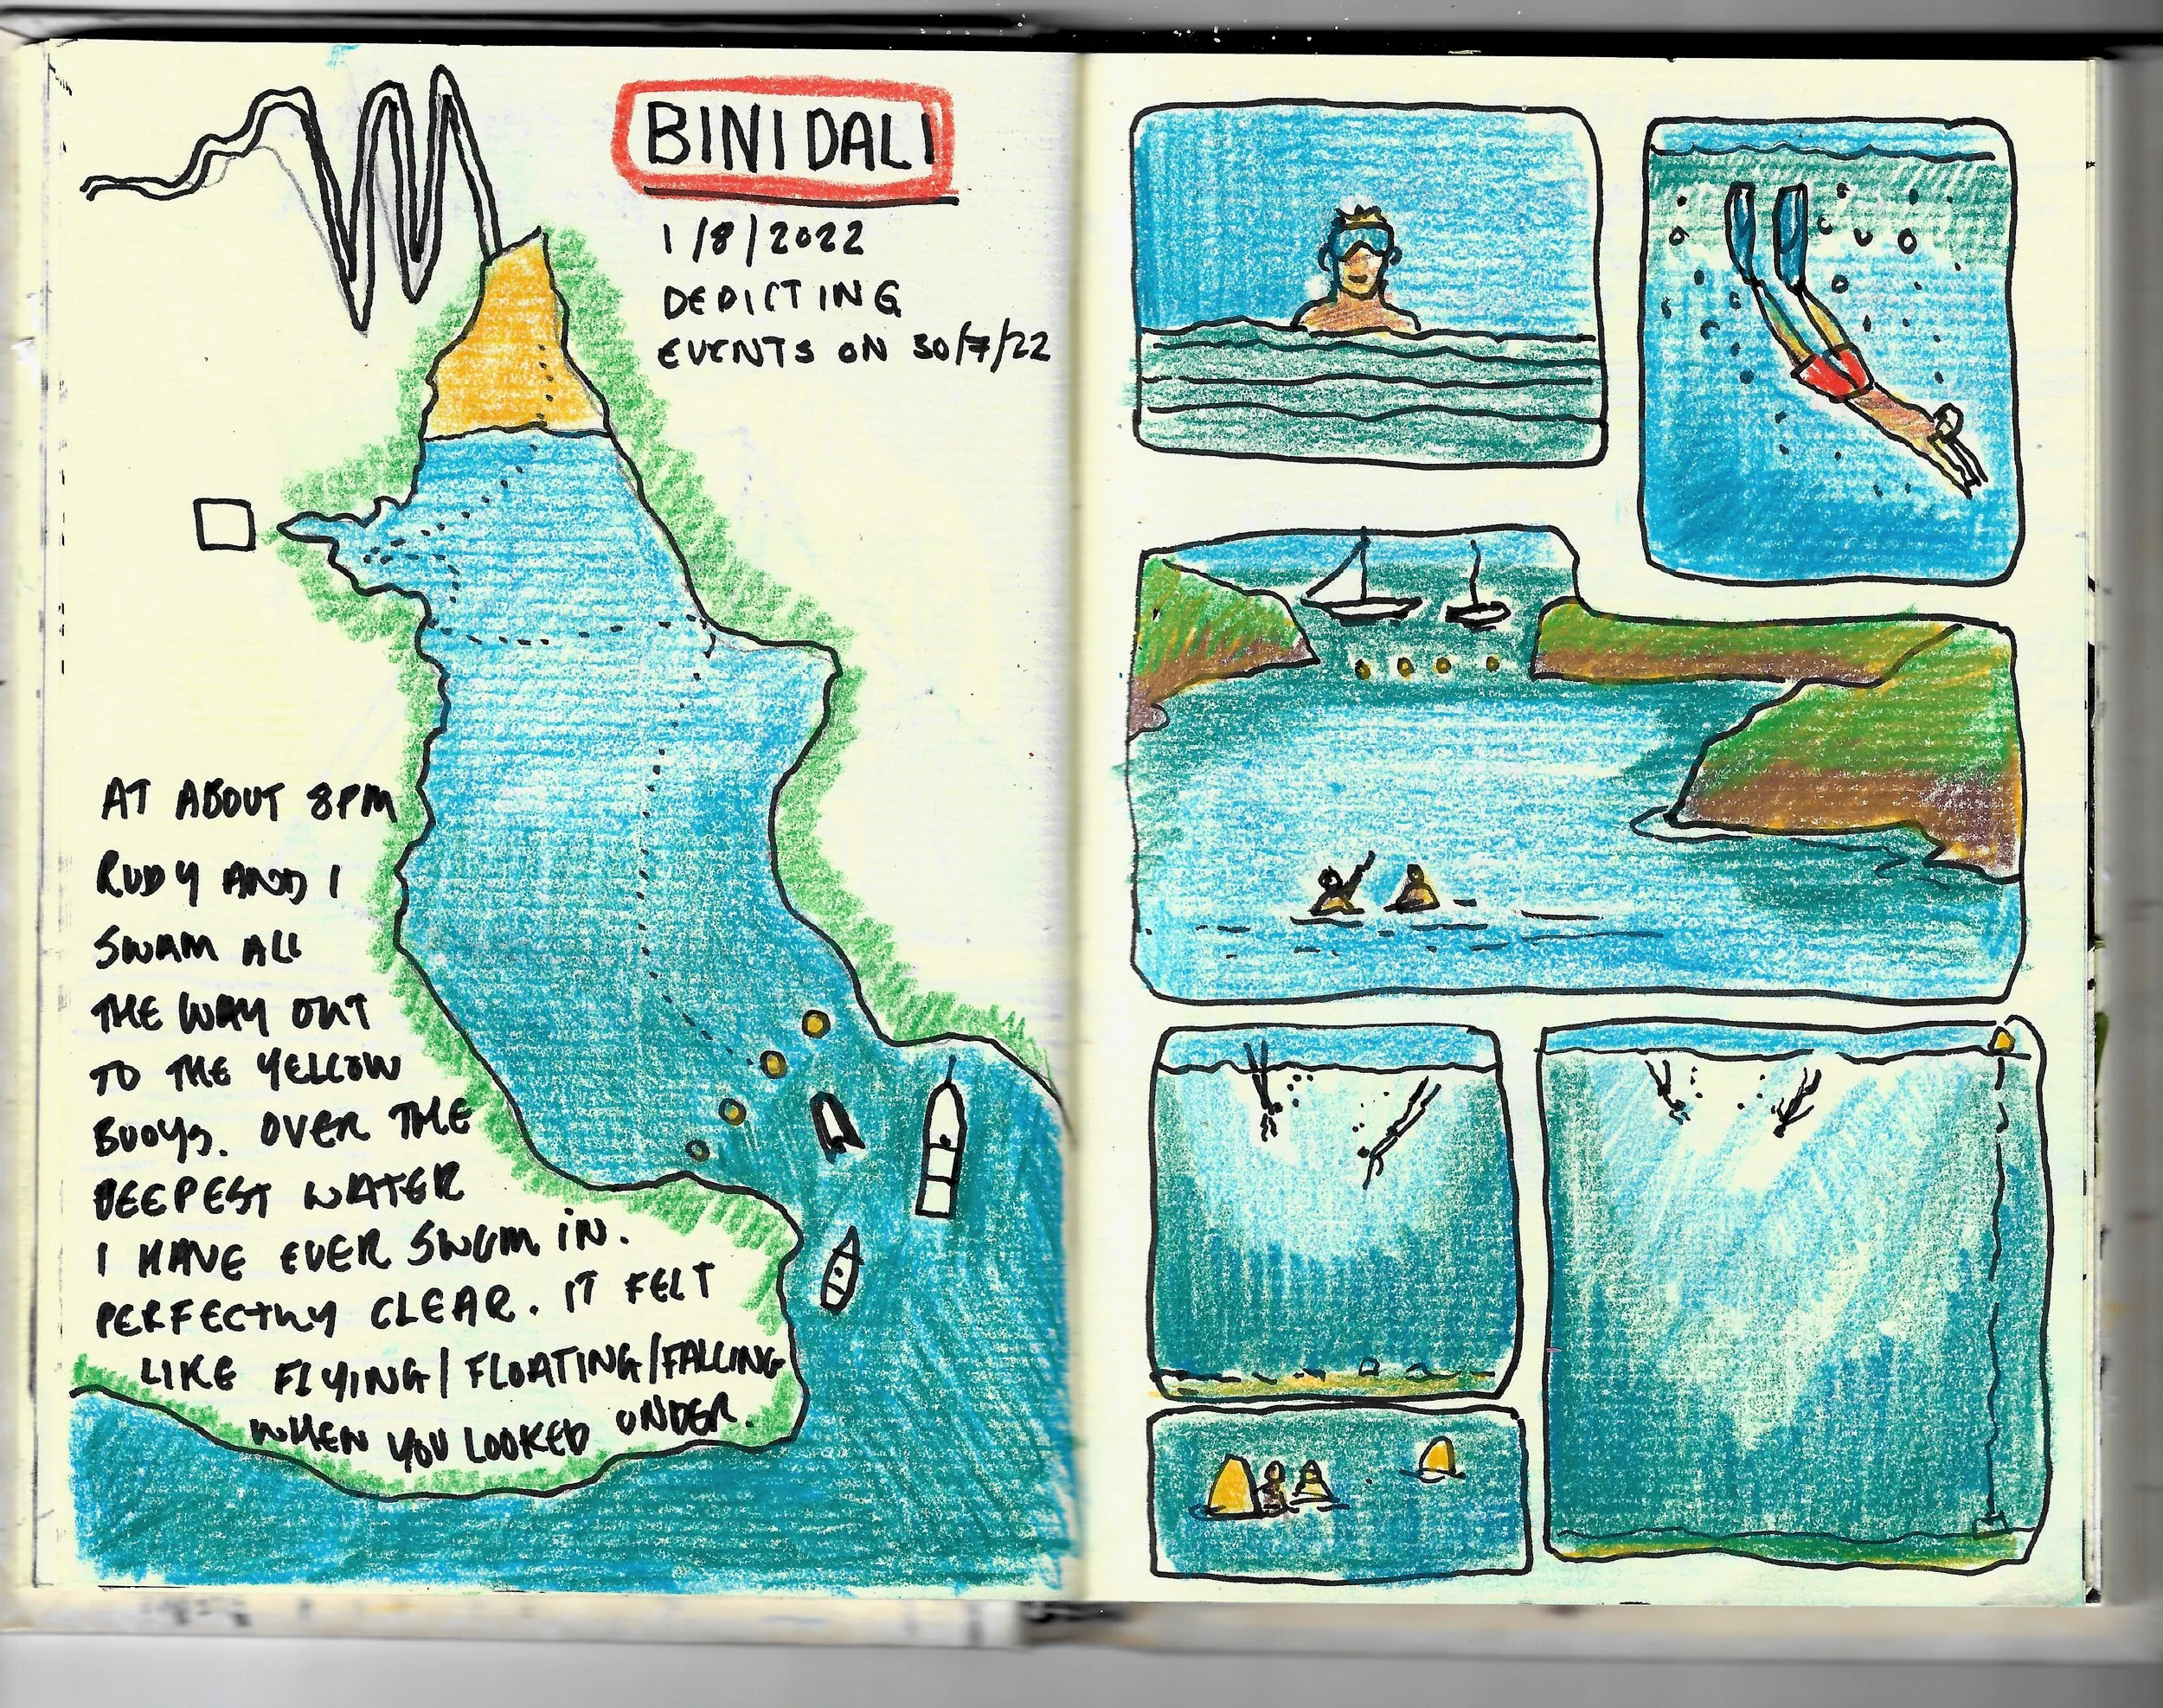 BINIDALI
1/8/2022
DEPICTING
EVENTS ON 30/7/22
AT ABOUT 8PM
RUDY AND I
SWAM ALL
THE WAY OUT
TO THE YELLOW
BUOYS. OVER THE
DEEPEST WATER
I HAVE EVER SWUM IN.
PERFECTLY CLEAR. IT FELT
LIKE FLYING/FLOATING/FALLING
WHEN YOU LOOKED UNDER.